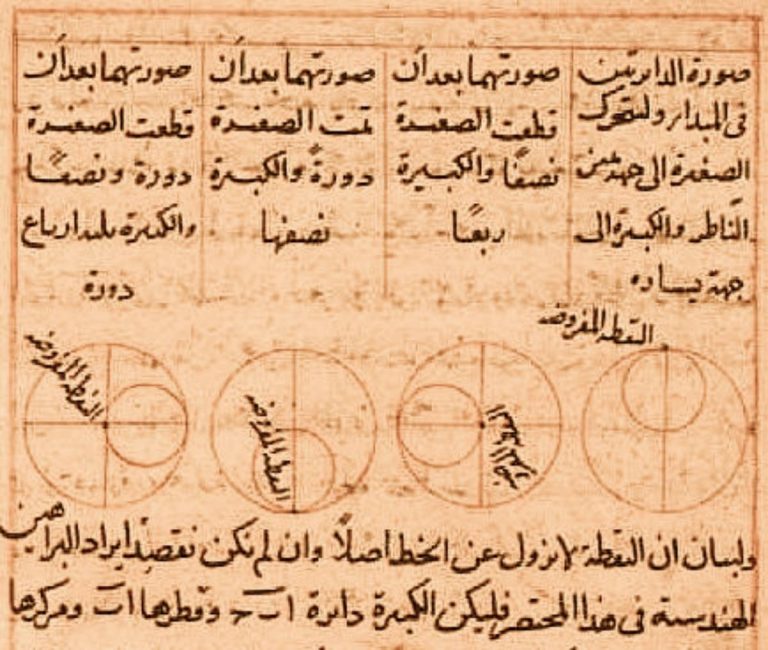 صورة الدايرتين
فى المبدا ولتتحرك
الصغيرة الى جهة يمين
الناظر والكبيرة الى
جهة يساره
صورتهما بعد أن
قطعت الصغيرة
نصفًا والكبيرة
ربعًا
صورتهما بعد أن
تمت الصغيرة
دورةً والكبيرة
نصفها
صورتهما بعد أن
قطعت الصغيرة
دورة ونصفًا
والكبيرة ثلثة ارباع
دورة
النقطة المفروضة
النقطة المفروضة
النقطة المفروضة
النقطة المفروضة
ولبيان ان النقطة لا تزول عن الخط اصلاً وان لم نكن نقصد ايراد البراهين
الهندسية فى هذا المختصر فليكن الكبيرة دايرة ا ب ح وقطرها ا ب ومركزها